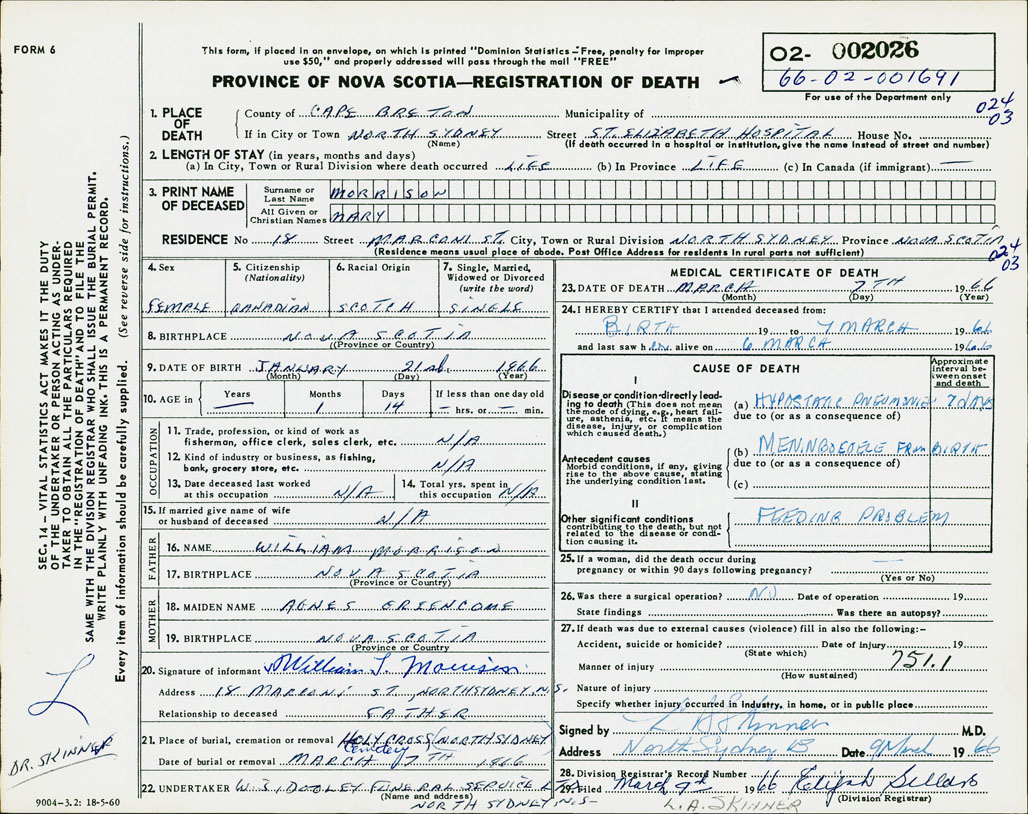 FORM 6
This form, if placed in an envelope, on which is printed "Dominion Statistics - Free, penalty for improper
use $50," and properly addressed will pass through the mail "FREE"
PROVINCE OF NOVA SCOTIA—REGISTRATION OF DEATH
02- 002026
66-02-001691
For use of the Department only
024
03
1. PLACE OF DEATH
County of CAPE BRETON Municipality of
If in City or Town NORTH SYDNEY Street ST. ELIZABETH HOSPITAL House No.
(Name) (If death occurred in a hospital or institution, give the name instead of street and number)
2. LENGTH OF STAY (in years, months and days)
(a) In City, Town or Rural Division where death occurred LIFE (b) In Province LIFE (c) In Canada (if immigrant) —
3. PRINT NAME OF DECEASED
Surname or Last Name MORRISON
All Given or Christian Names MARY
RESIDENCE No 18 Street MARCONI ST. City, Town or Rural Division NORTH SYDNEY Province NOVA SCOTIA
(Residence means usual place of abode. Post Office Address for residents in rural parts not sufficient)
024
03
4. Sex FEMALE
5. Citizenship (Nationality) CANADIAN
6. Racial Origin SCOTCH
7. Single, Married, Widowed or Divorced (write the word) SINGLE
8. BIRTHPLACE NOVA SCOTIA
(Province or Country)
9. DATE OF BIRTH JANUARY 21st 1966
(Month) (Day) (Year)
10. AGE in Years — Months 1 Days 14 If less than one day old — hrs. or — min.
OCCUPATION
11. Trade, profession, or kind of work as
fisherman, office clerk, sales clerk, etc. N/A
12. Kind of industry or business, as fishing,
bank, grocery store, etc. N/A
13. Date deceased last worked at this occupation N/A
14. Total yrs. spent in this occupation N/A
15. If married give name of wife
or husband of deceased N/A
FATHER
16. NAME WILLIAM MORRISON
17. BIRTHPLACE NOVA SCOTIA
(Province or Country)
MOTHER
18. MAIDEN NAME AGNES
19. BIRTHPLACE NOVA SCOTIA
(Province or Country)
20. Signature of informant William J. Morrison
Address 18 MARCONI ST., NORTH SYDNEY, N.S.
Relationship to deceased FATHER
21. Place of burial, cremation or removal HOLY CROSS, NORTH SYDNEY
Cemetery
Date of burial or removal MARCH 7TH 1966
22. UNDERTAKER W.J. DOOLEY FUNERAL SERVICE LTD
(Name and address)
NORTH SYDNEY N.S-
MEDICAL CERTIFICATE OF DEATH
23. DATE OF DEATH MARCH 7TH 1966
(Month) (Day) (Year)
24. I HEREBY CERTIFY that I attended deceased from:
BIRTH 19 to 7 MARCH 1966
and last saw her alive on 6 MARCH 1966
CAUSE OF DEATH
Approximate interval between onset and death
I
Disease or condition directly leading to death (This does not mean the mode of dying, e.g., heart failure, asthenia, etc. It means the disease, injury, or complication which caused death.)
(a) HYPOSTATIC PNEUMONIA 7 DAYS
due to (or as a consequence of)
Antecedent causes
Morbid conditions, if any, giving rise to the above cause, stating the underlying condition last.
(b) MENINGOCOELE FROM BIRTH
due to (or as a consequence of)
(c)
II
Other significant conditions
contributing to the death, but not related to the disease or condition causing it.
FEEDING PROBLEM
25. If a woman, did the death occur during
pregnancy or within 90 days following pregnancy? —
(Yes or No)
26. Was there a surgical operation? NO Date of operation 19
State findings Was there an autopsy?
27. If death was due to external causes (violence) fill in also the following:—
Accident, suicide or homicide? Date of injury 19
(State which)
751.1
Manner of injury
(How sustained)
Nature of injury
Specify whether injury occurred in industry, in home, or in public place
Signed by L A Skinner M.D.
Address North Sydney CB Date 9 March 1966
28. Division Registrar's Record Number
29. Filed March 9th 1966 Elijah Sellars
(Division Registrar)
L.A. SKINNER
SEC. 14 – VITAL STATISTICS ACT MAKES IT THE DUTY
OF THE UNDERTAKER OR PERSON ACTING AS UNDER-
TAKER TO OBTAIN ALL THE PARTICULARS REQUIRED
IN THE "REGISTRATION OF DEATH" AND TO FILE THE
SAME WITH THE DIVISION REGISTRAR WHO SHALL ISSUE THE BURIAL PERMIT.
WRITE PLAINLY WITH UNFADING INK. THIS IS A PERMANENT RECORD.
Every item of information should be carefully supplied. (See reverse side for instructions.)
L
DR. SKINNER
9004-3.2: 18-5-60